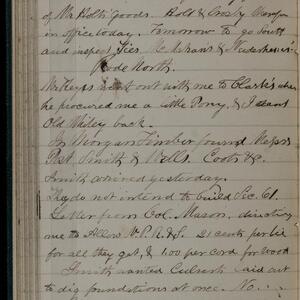 of Mr Holt's goods. Holt & Crosby
in office today. Tomorrow to go South
and inspect Ties.
Rode North.
Mr Keyes went out with me to Clark's where
he procured me a little Pony, & I sent
Old Whitey back.
In Morgan Timber found Messrs
Post, Smith & Wells, Coots &c.
Smith arrived yesterday.
They do not intend to build Sec. 61.
Letter from Col. Mason, directing
me to Allow N.P.R. & S. 21 cents per tie
for all they get, & 1.00 per cord for wood
Smith wanted Culverts laid out
to dig foundations at once. No.